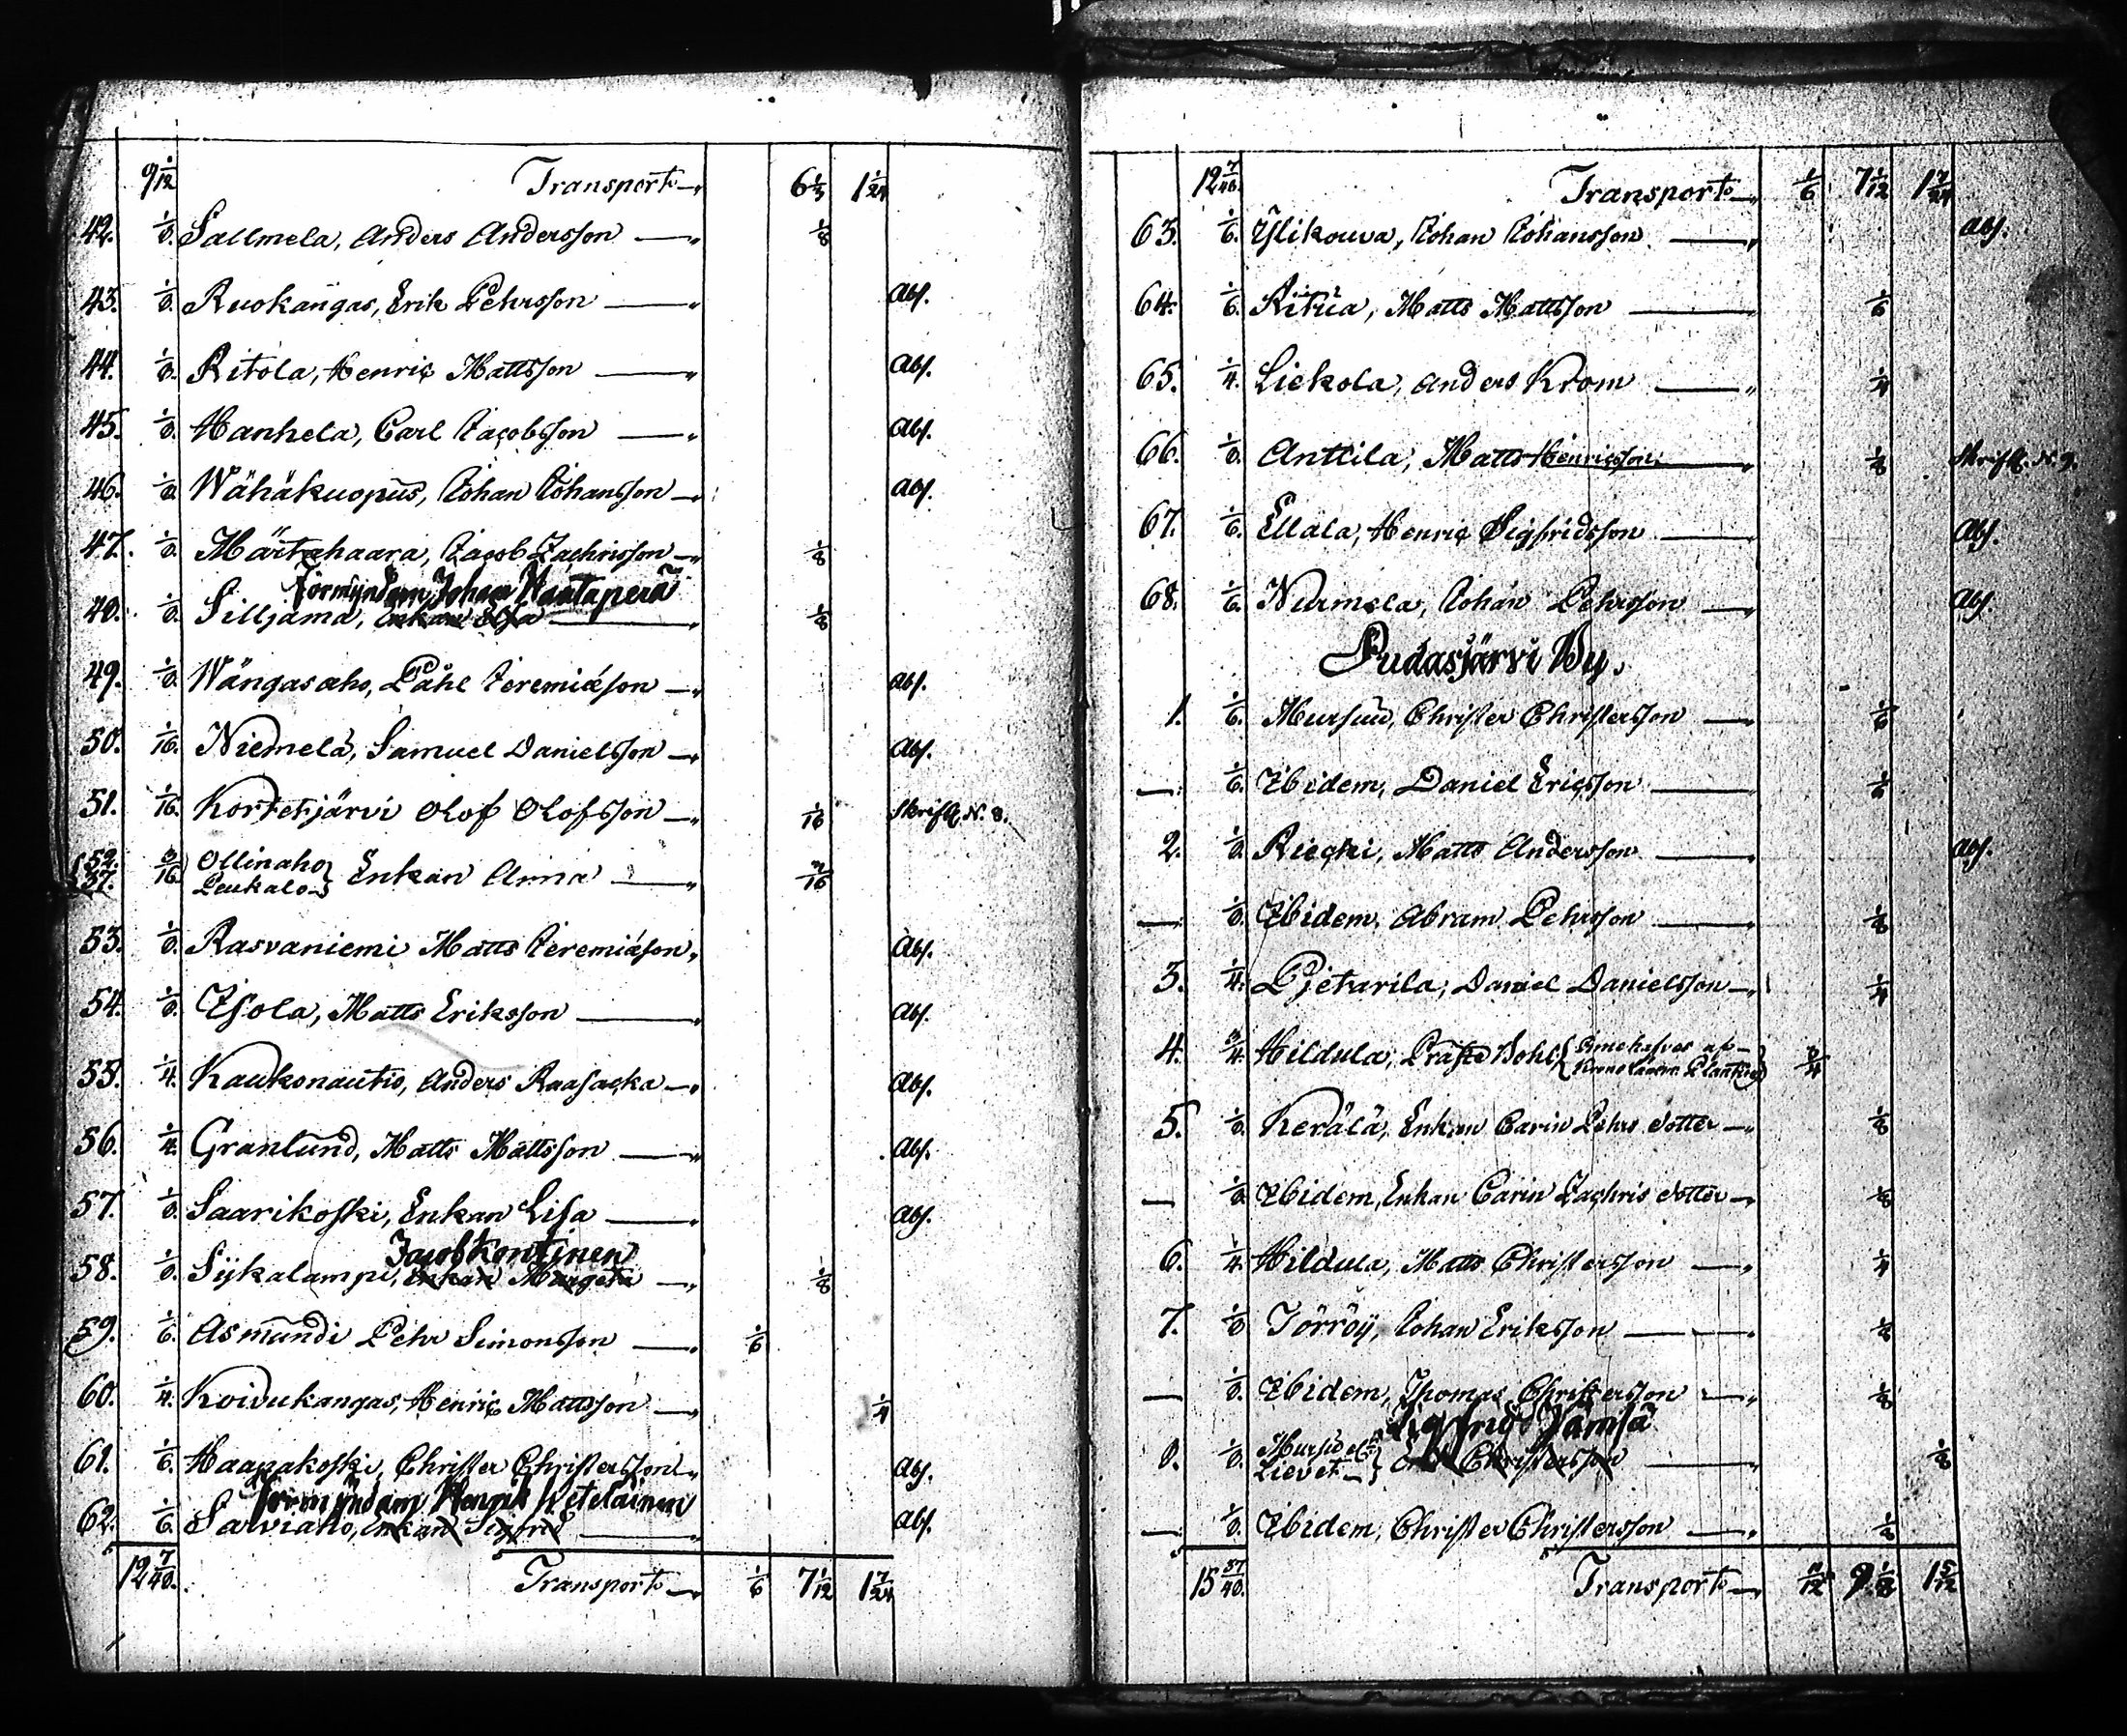 9 1/12 Transport 6 1/3 1 1/24
42. 1/8. Sallmela, Anders Andersson 1/8
43. 1/8. Ruokangas, Erik Pehrsson Abs.
44. 1/8. Ritola, Henric Mattsson Abs.
45. 1/8. Hanhela, Carl Jacobsson Abs.
46. 1/8. Wähäkuopus, Johan Johansson Abs.
47. 1/8. Märtahaara, Jacob Zachrisson 1/8
Förmyndaren Johan Hautaperä
48. 1/8. Silljama, Enkan Elsa 1/8
49. 1/8. Wängasaho, Påhl Jeremiäson Abs.
50. 1/16. Niemelä, Samuel Danielsson Abs.
51. 1/16. Kortetjärvi Olof Olofsson 1/16 Skriftl. N. 8.
52. 3/16. Ollinaho
37. Leukalo Enkan Anna 3/16
53. 1/8. Rasvaniemi Matts Jeremiäson Abs.
54. 1/8. Isola, Matts Eriksson Abs.
55. 1/4. Kaukonautio, Anders Raasacka Abs.
56. 1/4. Granlund, Matts Mattsson Abs.
57. 1/8. Saarikoski, Enkan Lisa Abs.
Jacob Kontinen
58. 1/8. Sijkalampi, Enkan Margeta 1/8
59. 1/6. Asmundi Pehr Simonsson 1/6
60. 1/4. Koivukangas, Henric Mattsson 1/4
61. 1/6. Haapakoski, Christer Christersson Abs.
Förmyndaren Henrik Hetelainen
62. 1/6. Salviaho, Enkan Sigfrid Abs.
12 7/48. Transport 1/6 7 1/12 1 7/24
12 7/48. Transport 1/6 7 1/12 1 7/24
63. 1/6. Ylikouva, Johan Johansson Abs.
64. 1/6. Ritua, Matts Mattsson 1/6
65. 1/4. Liekola, Anders Krom 1/4
66. 1/8. Anttila, Matts Henricsson 1/8 Skriftl. N. 9.
67. 1/6. Ellala, Henric Sigfridsson Abs.
68. 1/6. Nurmela, Johan Pehrsson Abs.
Pudasjärvi By.
1. 1/6. Mursuu, Christer Christersson 1/6
— 1/6. Ibidem, Daniel Ericsson 1/6
2. 1/8. Riecki, Matts Andersson Abs.
— 1/8. Ibidem, Abram Pehrsson 1/8
3. 1/4. Pjetarila, Daniel Danielsson 1/4
4. 3/4. Hildula, Präste Bohl Innehafves af 3/4
5. 1/8. Kerälä, Enkan Carin Pehrs dotter 1/8
— 1/8. Ibidem, Enkan Carin Zachris dotter 1/8
6. 1/4. Hildula, Matts Christersson 1/4
7. 1/8. Törröij, Johan Eriksson 1/8
— 1/8. Ibidem, Thomas Christersson 1/8
Sigfrid Jämsä
8. 1/8. Lievet Christersson 1/8
— 1/8. Ibidem, Christer Christersson 1/8
15 37/48. Transport 11/12 9 1/8 1 5/12